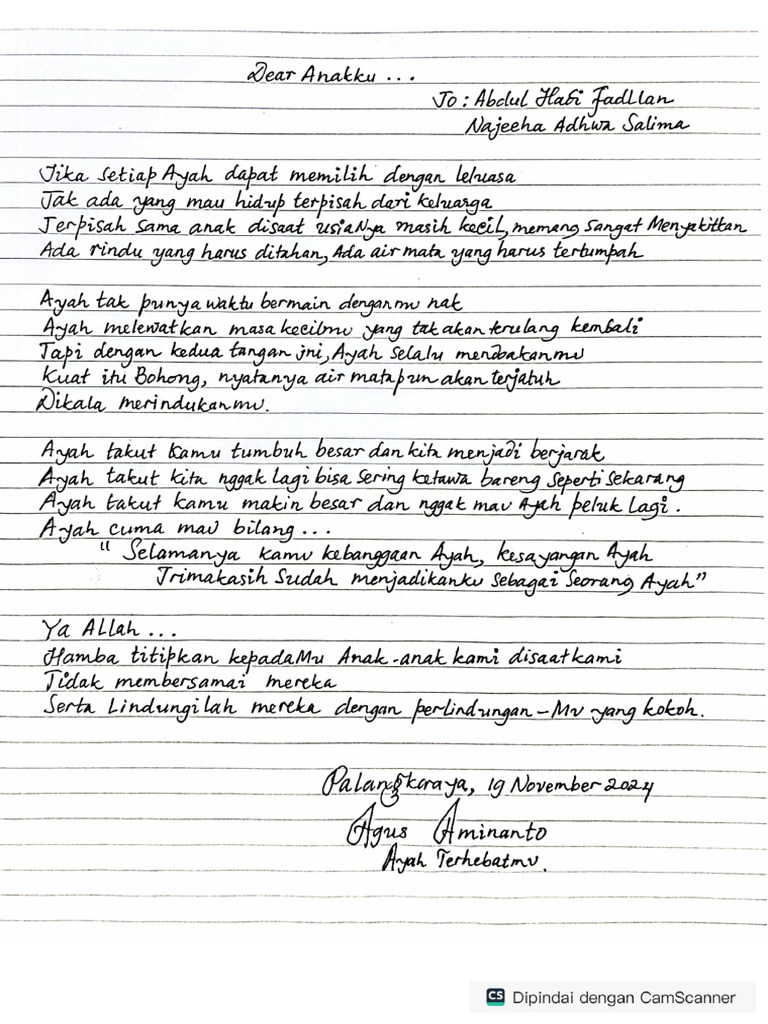 Dear Anakku ...
To : Abdul Hafi Fadllan
Najeeha Adhwa Salima
Jika setiap Ayah dapat memilih dengan leluasa
Tak ada yang mau hidup terpisah dari keluarga
Terpisah sama anak disaat usiaNya masih kecil, memang sangat Menyakitkan
Ada rindu yang harus ditahan, Ada air mata yang harus tertumpah
Ayah tak punya waktu bermain denganmu nak
Ayah melewatkan masa kecilmu yang tak akan terulang kembali
Tapi dengan kedua tangan ini, Ayah selalu mendoakanmu
Kuat itu Bohong, nyatanya air matapun akan terjatuh
Dikala merindukanmu.
Ayah takut kamu tumbuh besar dan kita menjadi berjarak
Ayah takut kita nggak lagi bisa sering ketawa bareng seperti sekarang
Ayah takut kamu makin besar dan nggak mau Ayah peluk lagi.
Ayah cuma mau bilang ...
" Selamanya kamu kebanggaan Ayah, kesayangan Ayah
Trimakasih Sudah menjadikanku sebagai seorang Ayah"
Ya Allah ...
Hamba titipkan kepadaMu Anak-anak kami disaat kami
Tidak membersamai mereka
Serta Lindungilah mereka dengan perlindungan-Mu yang kokoh.
Palangkaraya, 19 November 2024
Agus Aminanto
Ayah Terhebatmu.
CS Dipindai dengan CamScanner